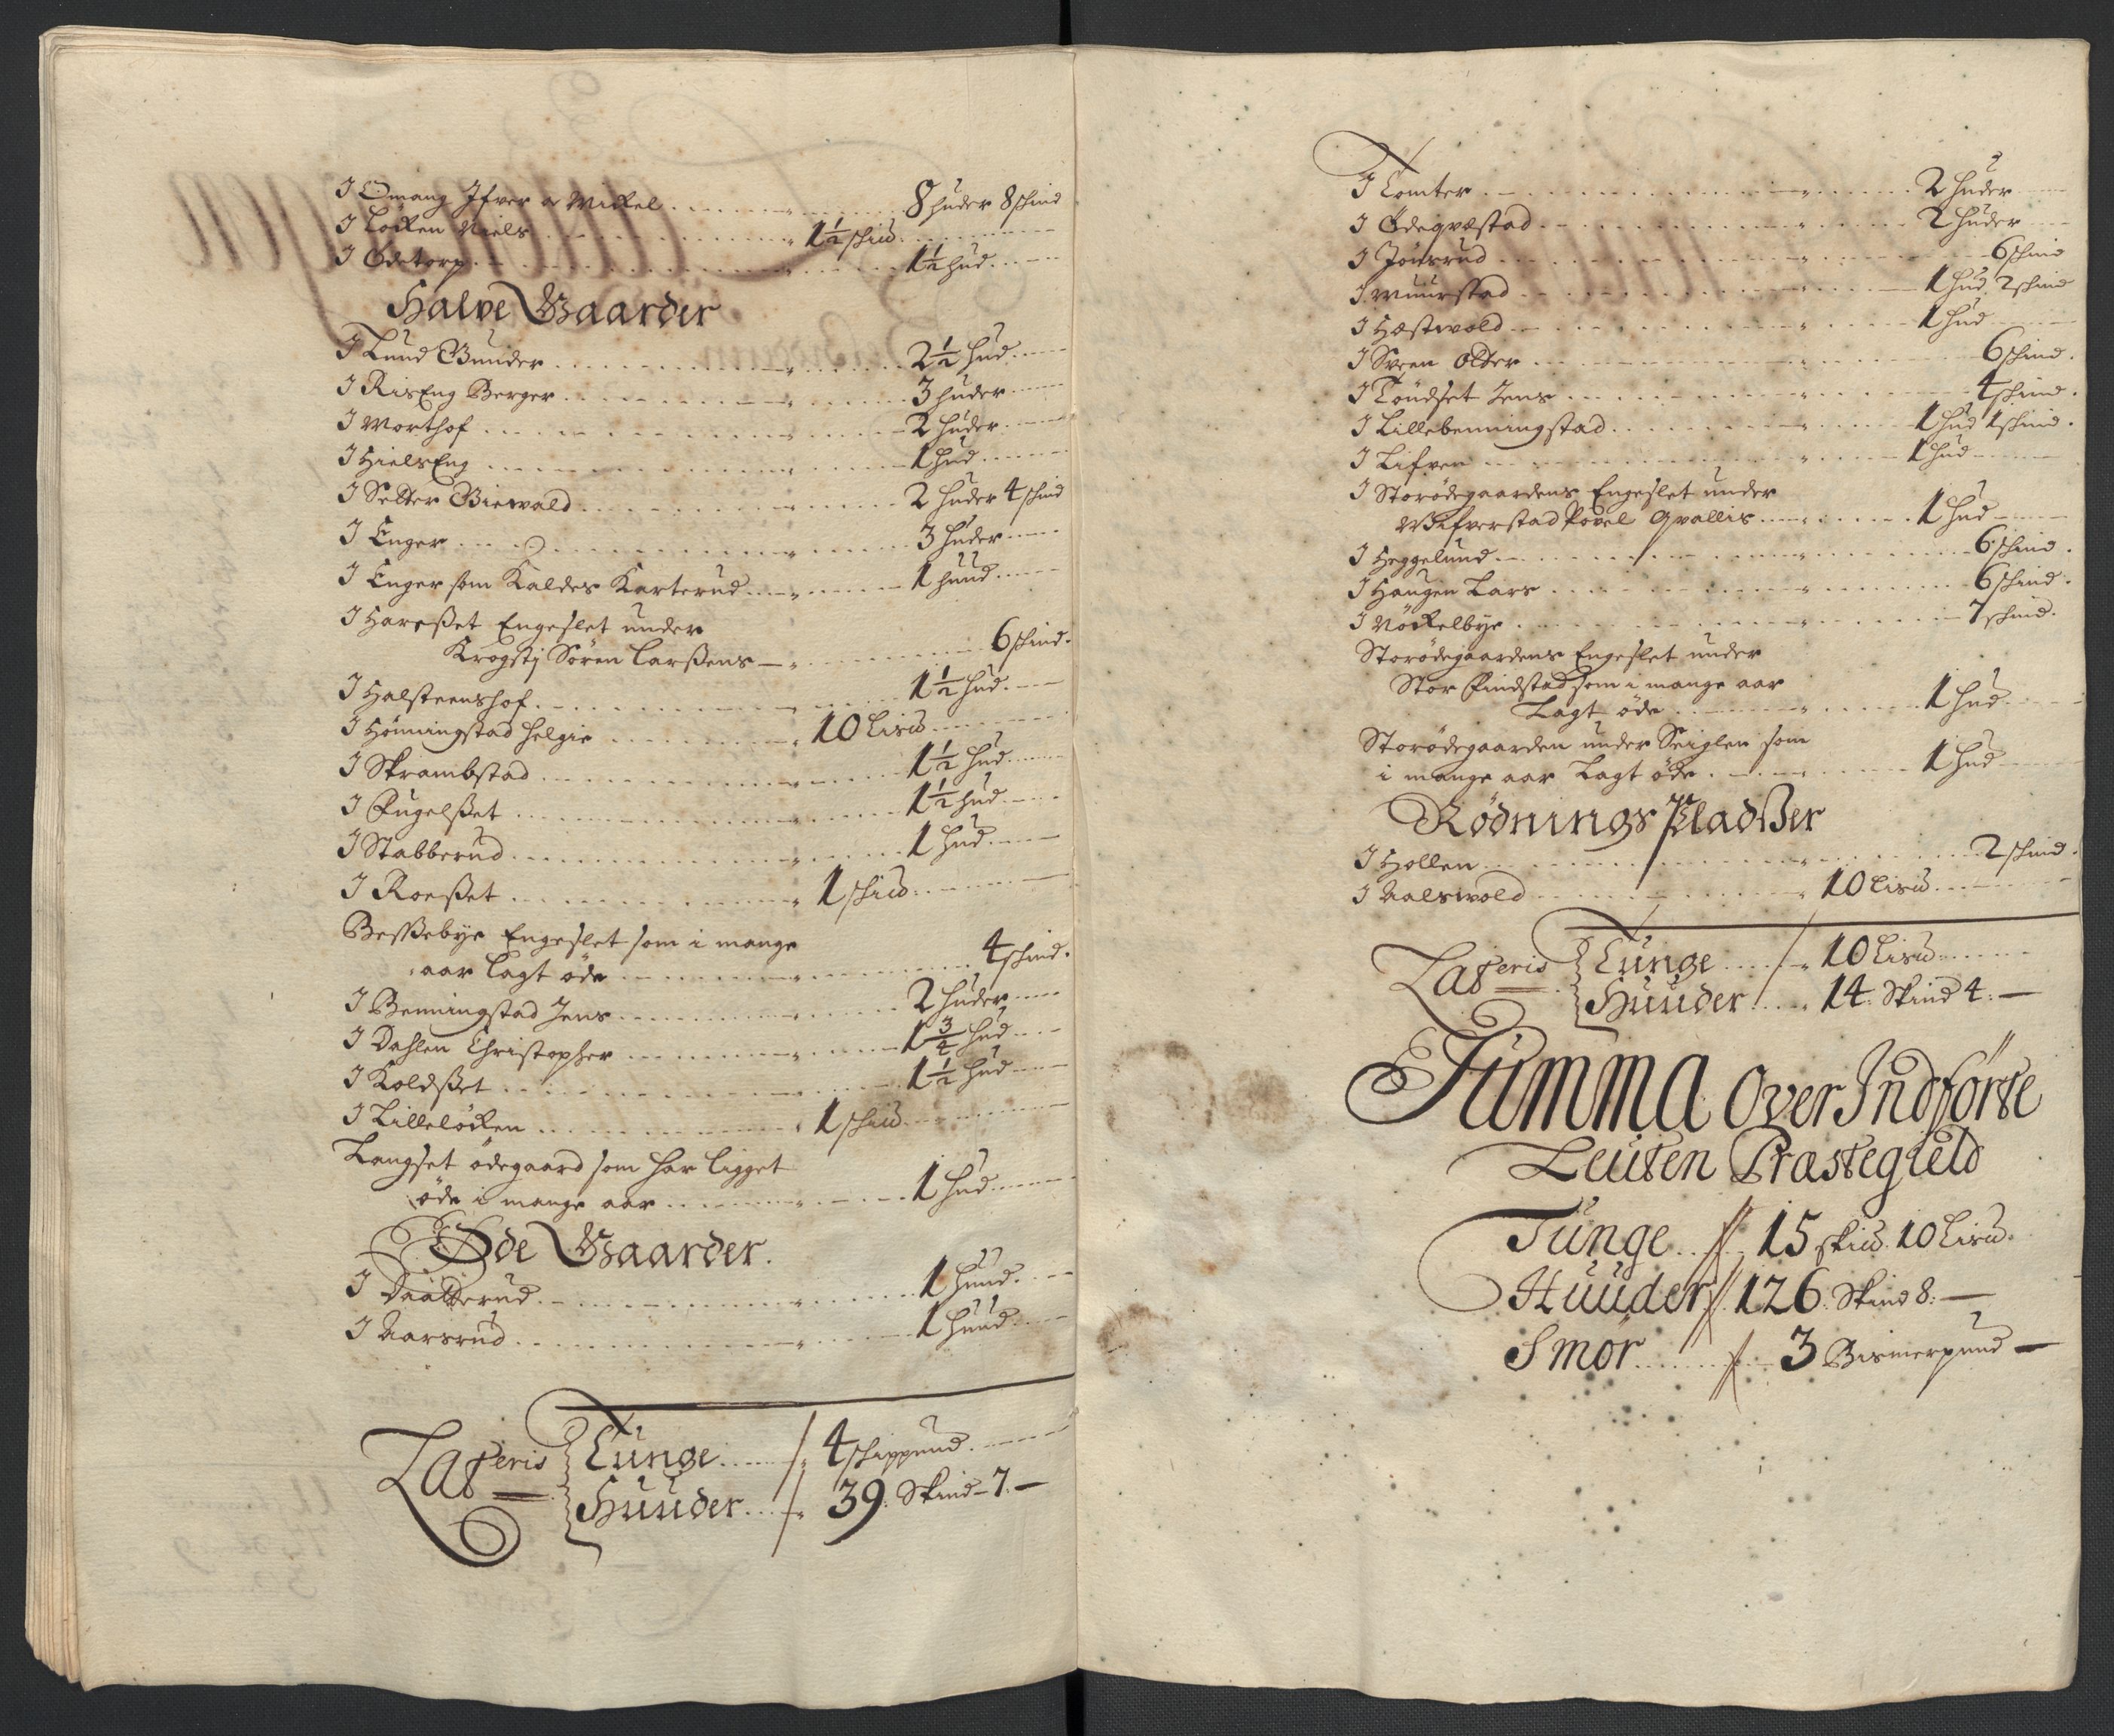 I Omang Ifver oc Mickel 8 huder 8 schind
I Löcken Niels 1½ schud
I Ödetorp 1½ hud
Halve Gaarder
I Lund Gunder 2½ hud
I RisEng Berger 3 huder
I Morthof 2 huder
I HielsEng 1 hud
I Setter Biewald 2 huder 4 schind
I Enger 3 huder
I Enger som Kaldes Karterud 1 huud
I Harsßet Engeslet under
Krogstj Sören Larßens 6 schind.
I Halsteenshof 1½ hud
I Hönningstad Helgie 10 Lisd
I Skrambstad 1½ hud
I Fugelßet 1½ hud
I Stabberud 1 hud
I Roeßet 1 schud
Beßebye Engeslet som i mange
aar lagt öde 4 schind.
I Benningstad Jens 2 huder
I Dahlen Christopher 1¾ hud
I Koldßet 1½ hud
I Lillelöcken 1 schud
Langset ödegaard som har ligget
öde i mange aar 1 hud
Øde Gaarder.
I Daatterud 1 huud
I Aarsrud 1 huud
Lateris Tunge 4 schippund
Huuder 39. Skind 7.
I Tomter 2 huder
I Ödeqvæstad 2 huder
I Jönsrud 6 schind
I Muurstad 1 hud 2 schind
I Hæstwold 1 hud
I Sveen Olter 6 schind.
I Töndset Jens 4 schind.
I Lillebenningstad 1 hud 1 schind.
I Lifven 1 hud
I Storödegaardens Engeslet under
Wifverstad Povel Qvallis 1 hud
I Heggelund 6 schind.
I Haugen Lars 6 schind.
I Nöckelbye 7 schind.
Storödegaardens Engeslet under
Stor Findstad som i mange aar
Lagt öde 1 hud
Storödegaarden under Seiglen som
i mange aar Lagt öde 1 hud
Rödnings Pladßer
I Hollen 2 schind.
I Aalswold 10 Lisd
Lateris Tunge 10 Lisd
Huuder 14. Skind 4.
Summa Over Indförte
Leuten Præstegield
Tunge 15 skud. 10 Lisd.
Huuder 126. Skind 8.
Smör 3 Bismerpund